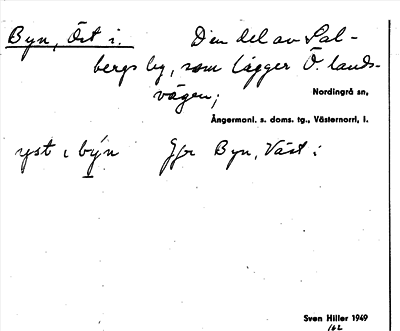 Byn, Öst i. Den del av Sal-
bergs by, som ligger Ö. lands-
vägen;
Nordingrå sn,
Ångermanl. s. doms. tg., Västernorrl. l.
yst i býn Jfr Byn, Väst i
Sven Hiller 1949
162